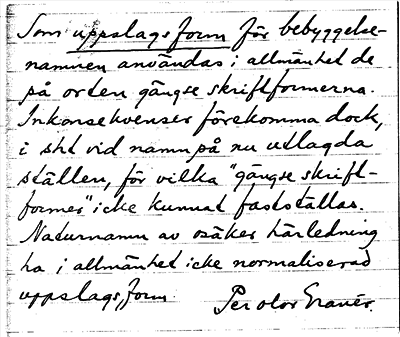 Som uppslagsform för bebyggelse-
namnen användas i allmänhet de
på orten gängse skriftformerna.
Inkonsekvenser förekomma dock,
i sht vid namn på nu utlagda
ställen, för vilka "gängse skrift-
former" icke kunnat fastställas.
Naturnamn av osäker härledning
ha i allmänhet icke normaliserad
uppslagsform.
Per Olof